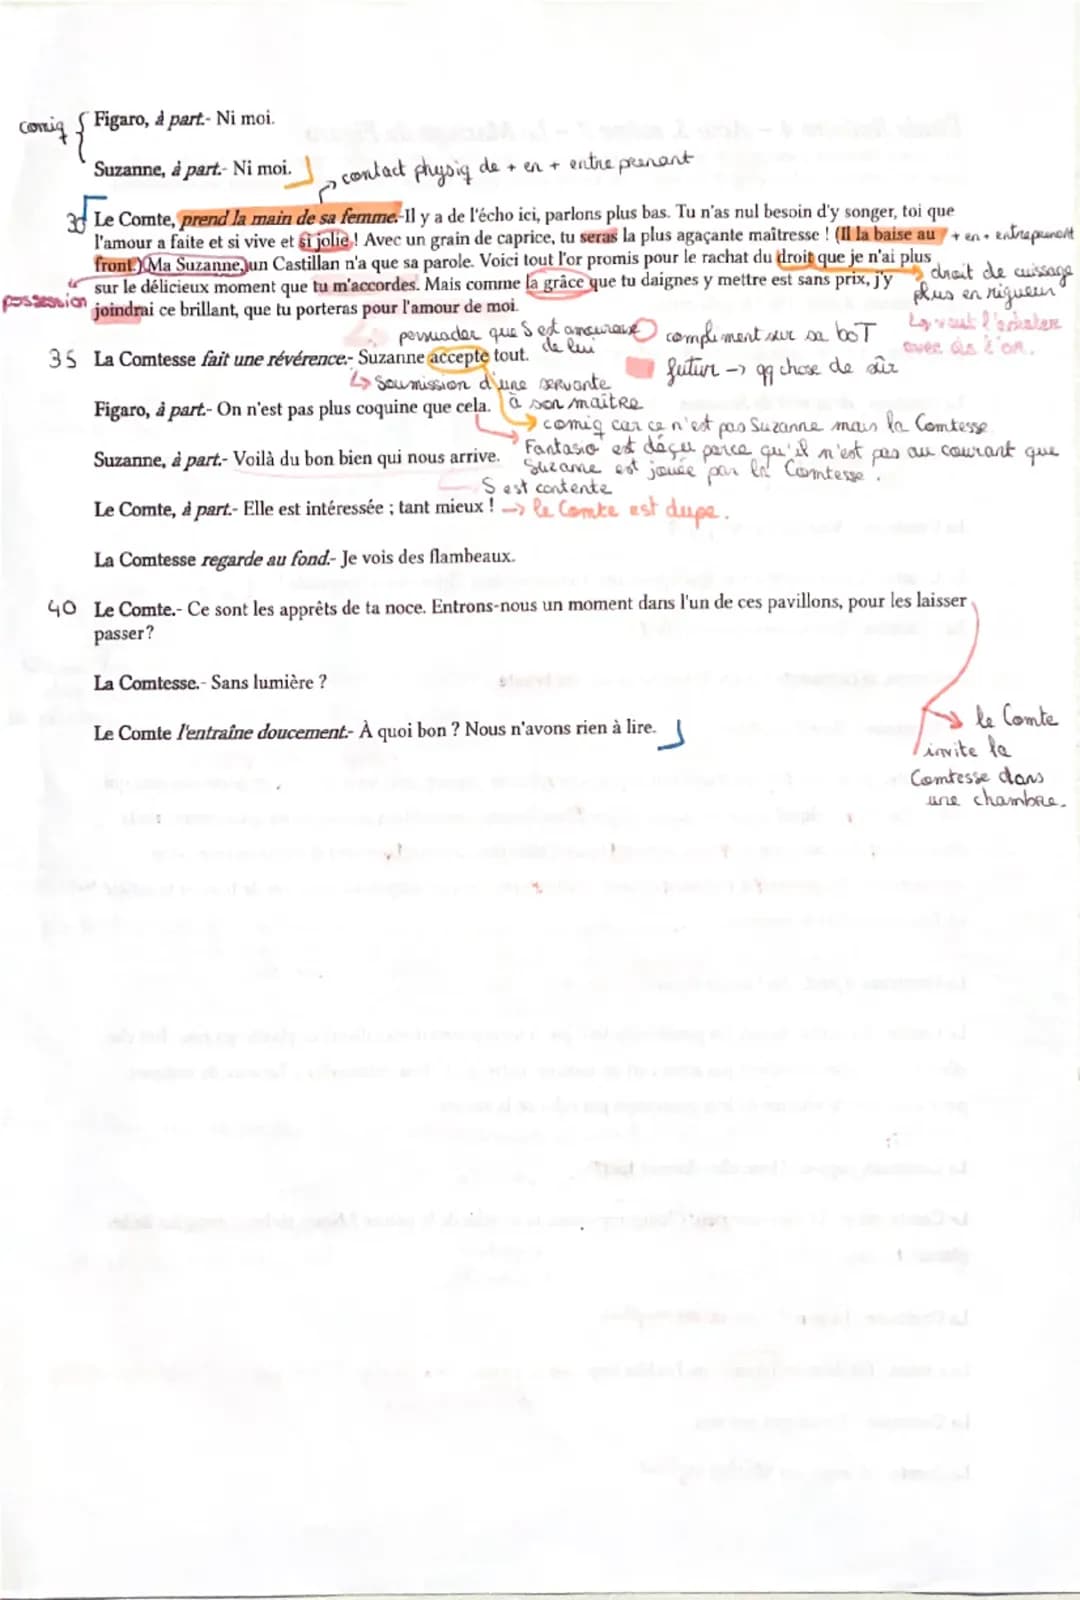 comiq { Figaro, à part.- Ni moi.
Suzanne, à part.- Ni moi.
contact physiq de + en + entre prenant
30 Le Comte, prend la main de sa femme.-Il y a de l'écho ici, parlons plus bas. Tu n'as nul besoin d'y songer, toi que
l'amour a faite et si vive et si jolie ! Avec un grain de caprice, tu seras la plus agaçante maîtresse ! (Il la baise au
+ en + entreprenant
front.) Ma Suzanne, un Castillan n'a que sa parole. Voici tout l'or promis pour le rachat du droit que je n'ai plus
sur le délicieux moment que tu m'accordes. Mais comme la grâce que tu daignes y mettre est sans prix, j'y
droit de cuissage
plus en rigueur
possession
joindrai ce brillant, que tu porteras pour l'amour de moi.
veut l'acheter
avec de l'or.
persuader que S est amoureuse
de lui
compliment sur sa boT
35 La Comtesse fait une révérence.- Suzanne accepte tout.
futur -> qq chose de sûr
↳ Soumission d'une servante
à son maître
Figaro, à part.- On n'est pas plus coquine que cela.
comiq car ce n'est pas Suzanne mais la Comtesse
Fantasio est déçu parce qu'il n'est pas au courant que
Suzanne est jouée par la Comtesse.
Suzanne, à part.- Voilà du bon bien qui nous arrive.
S est contente
Le Comte, à part.- Elle est intéressée ; tant mieux ! -> le Comte est dupe.
La Comtesse regarde au fond.- Je vois des flambeaux.
40 Le Comte.- Ce sont les apprêts de ta noce. Entrons-nous un moment dans l'un de ces pavillons, pour les laisser
passer?
La Comtesse.- Sans lumière ?
Le Comte l'entraîne doucement.- À quoi bon ? Nous n'avons rien à lire.
le Comte
invite la
Comtesse dans
une chambre.